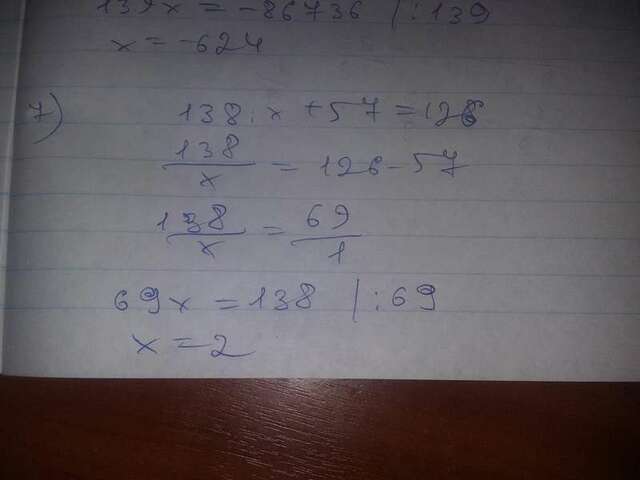 139x = -86736 | :139
x = -624
7) 138 : x + 57 = 126
138/x = 126 - 57
138/x = 69/1
69x = 138 | : 69
x = 2